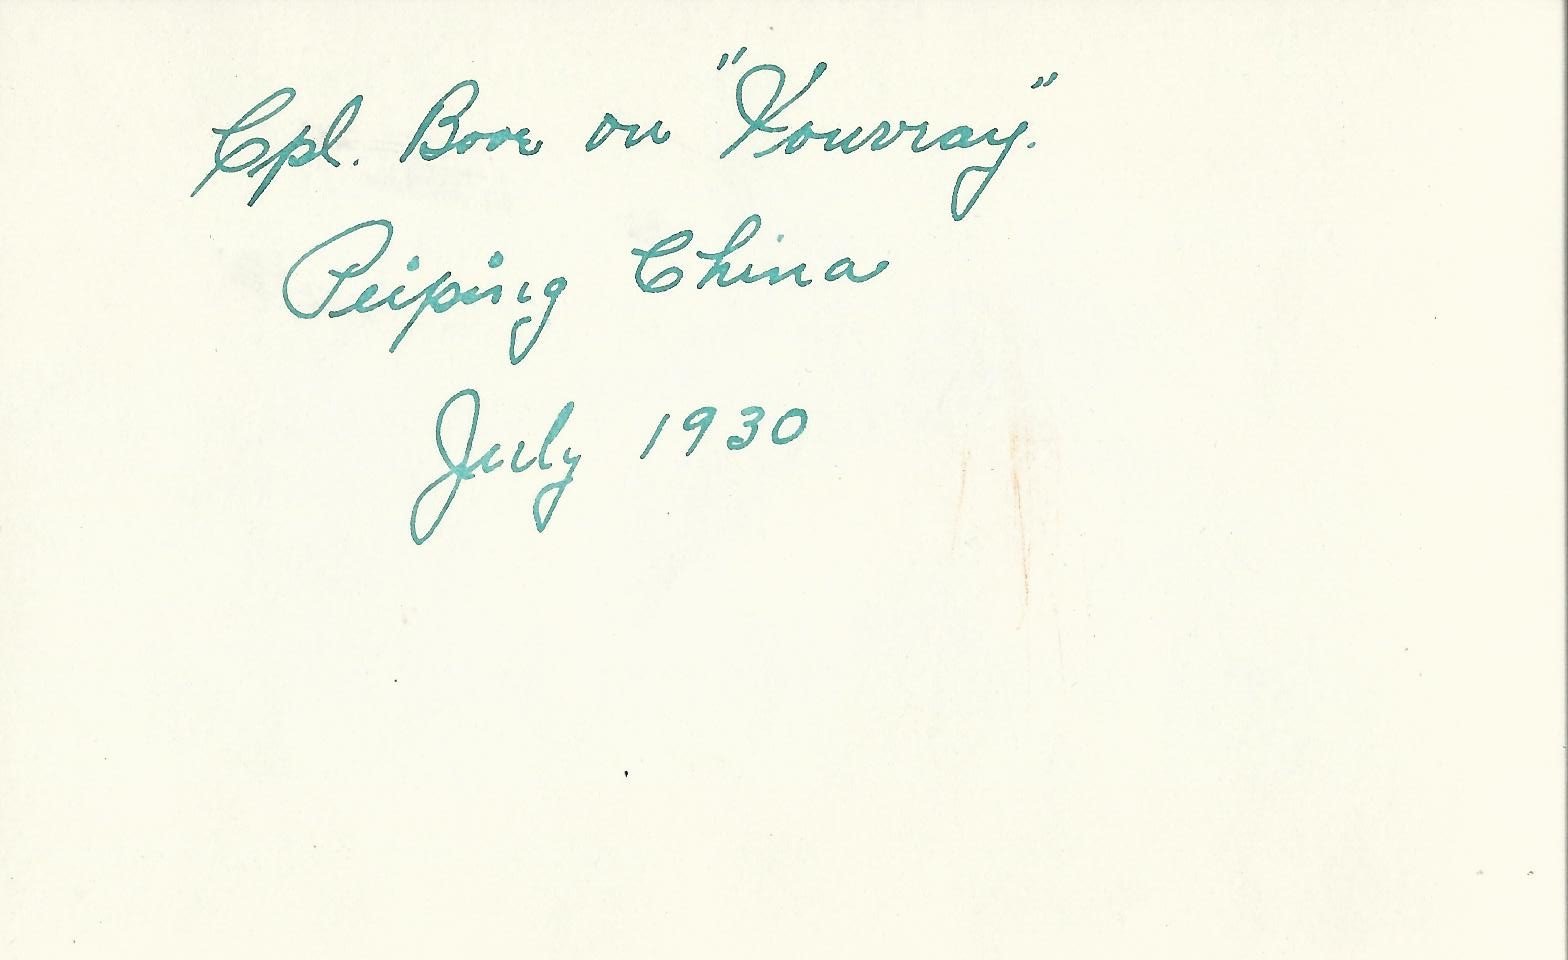 Cpl. Boor on "Vouvray."
Peiping China
July 1930